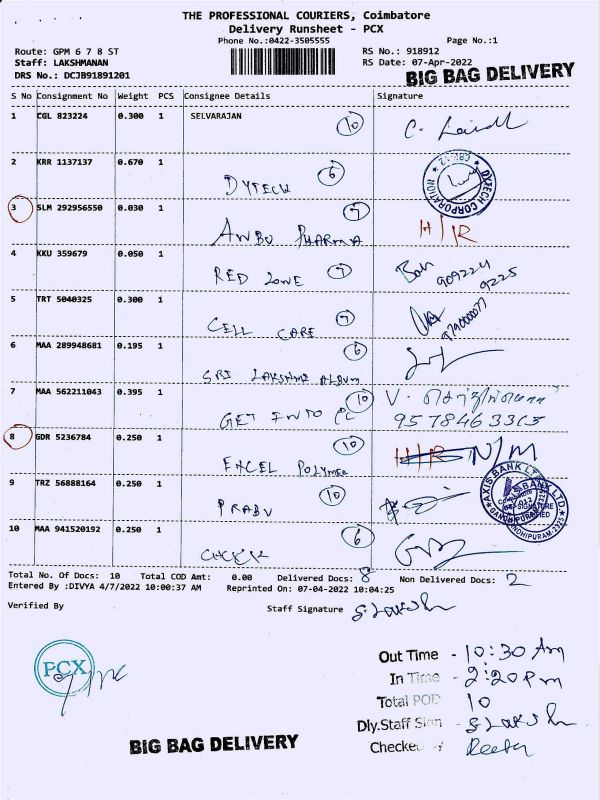 THE PROFESSIONAL COURIERS, Coimbatore
Delivery Runsheet - PCX
Phone No.:0422-3505555
Page No.:1
Route: GPM 6 7 8 ST
RS No.: 918912
Staff: LAKSHMANAN
RS Date: 07-Apr-2022
DRS No.: DCJB91891201
BIG BAG DELIVERY
S No Consignment No Weight PCS Consignee Details Signature
1 CGL 823224 0.300 1 SELVARAJAN 10
2 KRR 1137137 0.670 1 DYTECH 6
DYTECH CORPORATION
3 SLM 292956550 0.030 1 ANBU PHARMA 7 H/R
4 KKU 359679 0.050 1 RED ZONE 7
5 TRT 5040325 0.300 1 CELL CARE 7
6 MAA 289948681 0.195 1 SRI LAKSHMI ALBUM 6
7 MAA 562211043 0.395 1 GET INTO PC 10 V.
8 GDR 5236784 0.250 1 EXCEL POLYMER 10 H/R N/M
9 TRZ 56888164 0.250 1 PRABU 10
AXIS BANK LTD.
10 MAA 941520192 0.250 1 6
Total No. Of Docs: 10 Total COD Amt: 0.00 Delivered Docs: 8 Non Delivered Docs: 2
Entered By :DIVYA 4/7/2022 10:00:37 AM Reprinted On: 07-04-2022 10:04:25
Verified By
Staff Signature S. Laksh
PCX
Out Time - 10:30 Am
In Time - 2:20 pm
Total POD - 10
Dly.Staff Sign - S Laksh
Checked By
BIG BAG DELIVERY